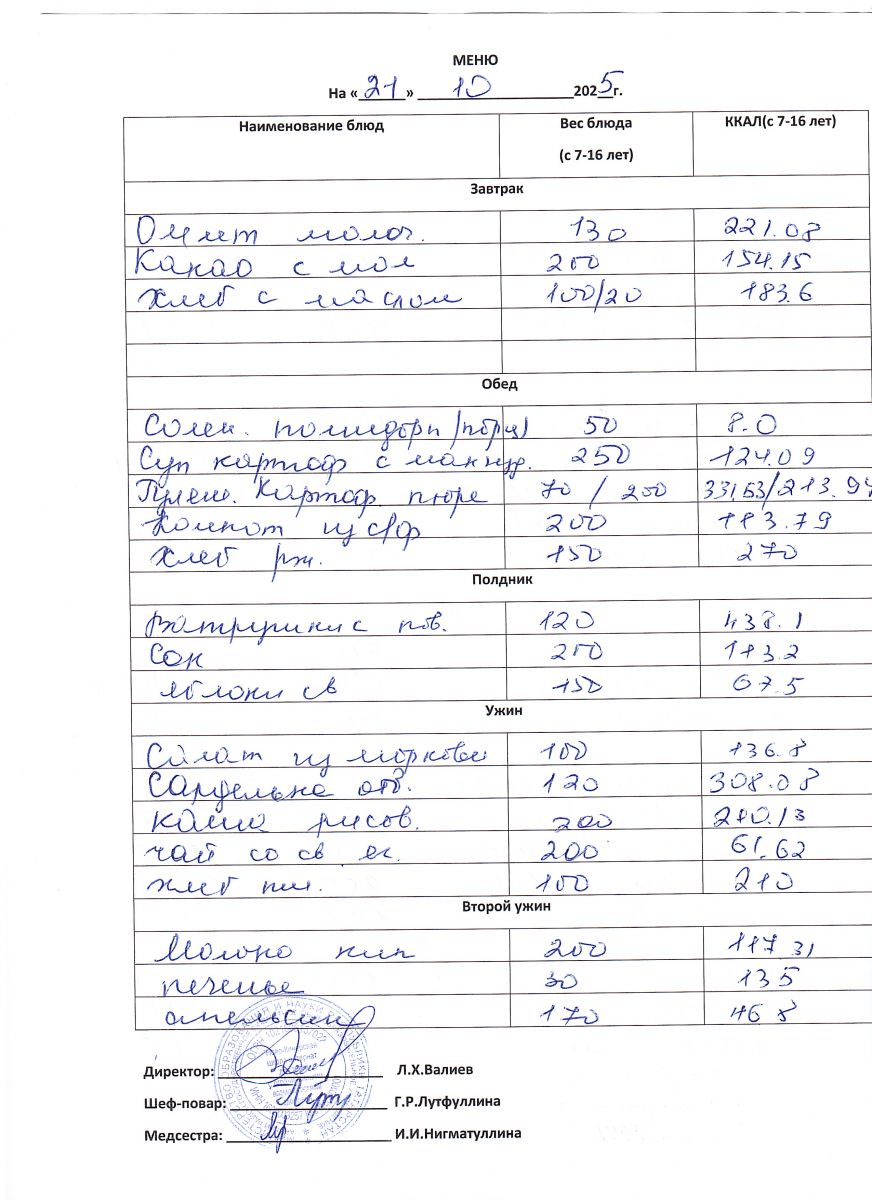 МЕНЮ
На «21» 10 2025г.
Наименование блюд Вес блюда (с 7-16 лет) ККАЛ(с 7-16 лет)
Завтрак
Омлет молоч. 130 221.08
Какао с мол 200 154.15
Хлеб с маслом 100/20 183.6
Обед
Солен. помидоры 50 8.0
Суп картоф с макар. 250 124.09
Картоф. пюре 70 / 200 331,53/213.94
Компот из с/ф 200 113.79
Хлеб рж. 150 270
Полдник
Ватрушки с пов. 120 438.1
Сок 200 183.2
яблоки св 150 67.5
Ужин
Салат из моркови 100 136.8
Сарделька отв. 120 308.08
каша рисов. 200 280.13
чай со св 200 61.62
хлеб пш. 100 210
Второй ужин
Молоко кип 200 117 31
печенье 30 135
апельсин 170 46 8
Директор: Л.Х.Валиев
Шеф-повар: Г.Р.Лутфуллина
Медсестра: И.И.Нигматуллина